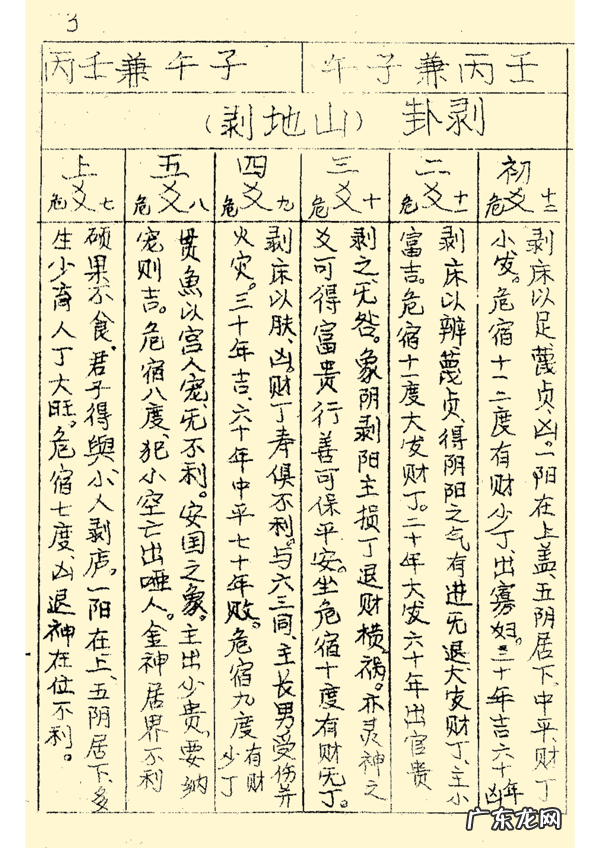 3
壬丙兼子午
子午兼壬丙
剥卦（山地剥）
初爻 危十二
剥床以足蔑贞凶。一阳在上盖、五阴居下、中平、财丁
小发。危宿十一二度有财少丁、出寡妇。三十年吉六十年凶
二爻 危十一
剥床以辨、蔑贞、得阴阳之气有进无退、大发财丁、主小
富吉。危宿十一度大发财丁。二十年大发六十年出官贵
三爻 危十
剥之无咎。象阴剥阳主损丁退财横祸。亦灵神之
爻可得富贵行善可保平安。坐危宿十度有财无丁。
四爻 危九
剥床以肤、凶。财丁寿俱不利。与六三同、主长男受伤并
火灾。三十年吉、六十年中平七十年败。危宿九度有财少丁
五爻 危八
贯魚以宫人宠、无不利。安国之象。主出少贵、要纳
宠则吉。危宿八度、犯小空亡出哑人。金神居界不利
上爻 危七
硕果不食、君子得舆、小人剥庐。一阳在上、五阴居下、多
生少育人丁大旺。危宿七度、凶退神在位不利。
广东龙网